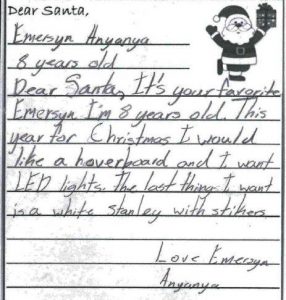 Dear Santa,
Emersyn Anyanya
8 years old
Dear Santa, It's your favorite
Emersyn I'm 8 years old. This
year for Christmas I would
like a hoverboard and I want
LED lights. The last thing I want
is a white Stanley with stikers
Love Emersyn
Anyanya